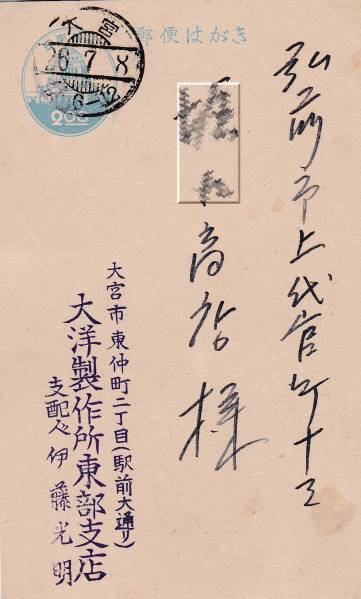 郵便はがき
大宮
26.7.8
6-12
200
弘前市上代官町十三
商店様
大宮市東仲町二丁目(駅前大通り)
大洋製作所東部支店
支配人 伊藤光明